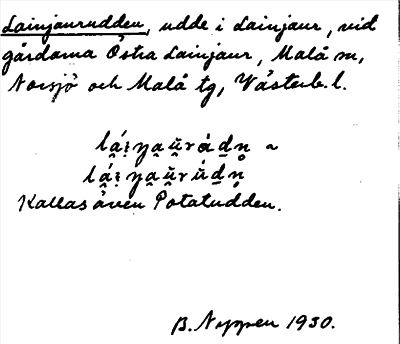 Lainjaurudden, udde i Lainjaur, vid
gårdarna Östra Lainjaur, Malå sn,
Norsjö och Malå tg, Västerb. l.
Kallas även Potatudden.
B. Nyppen 1930.